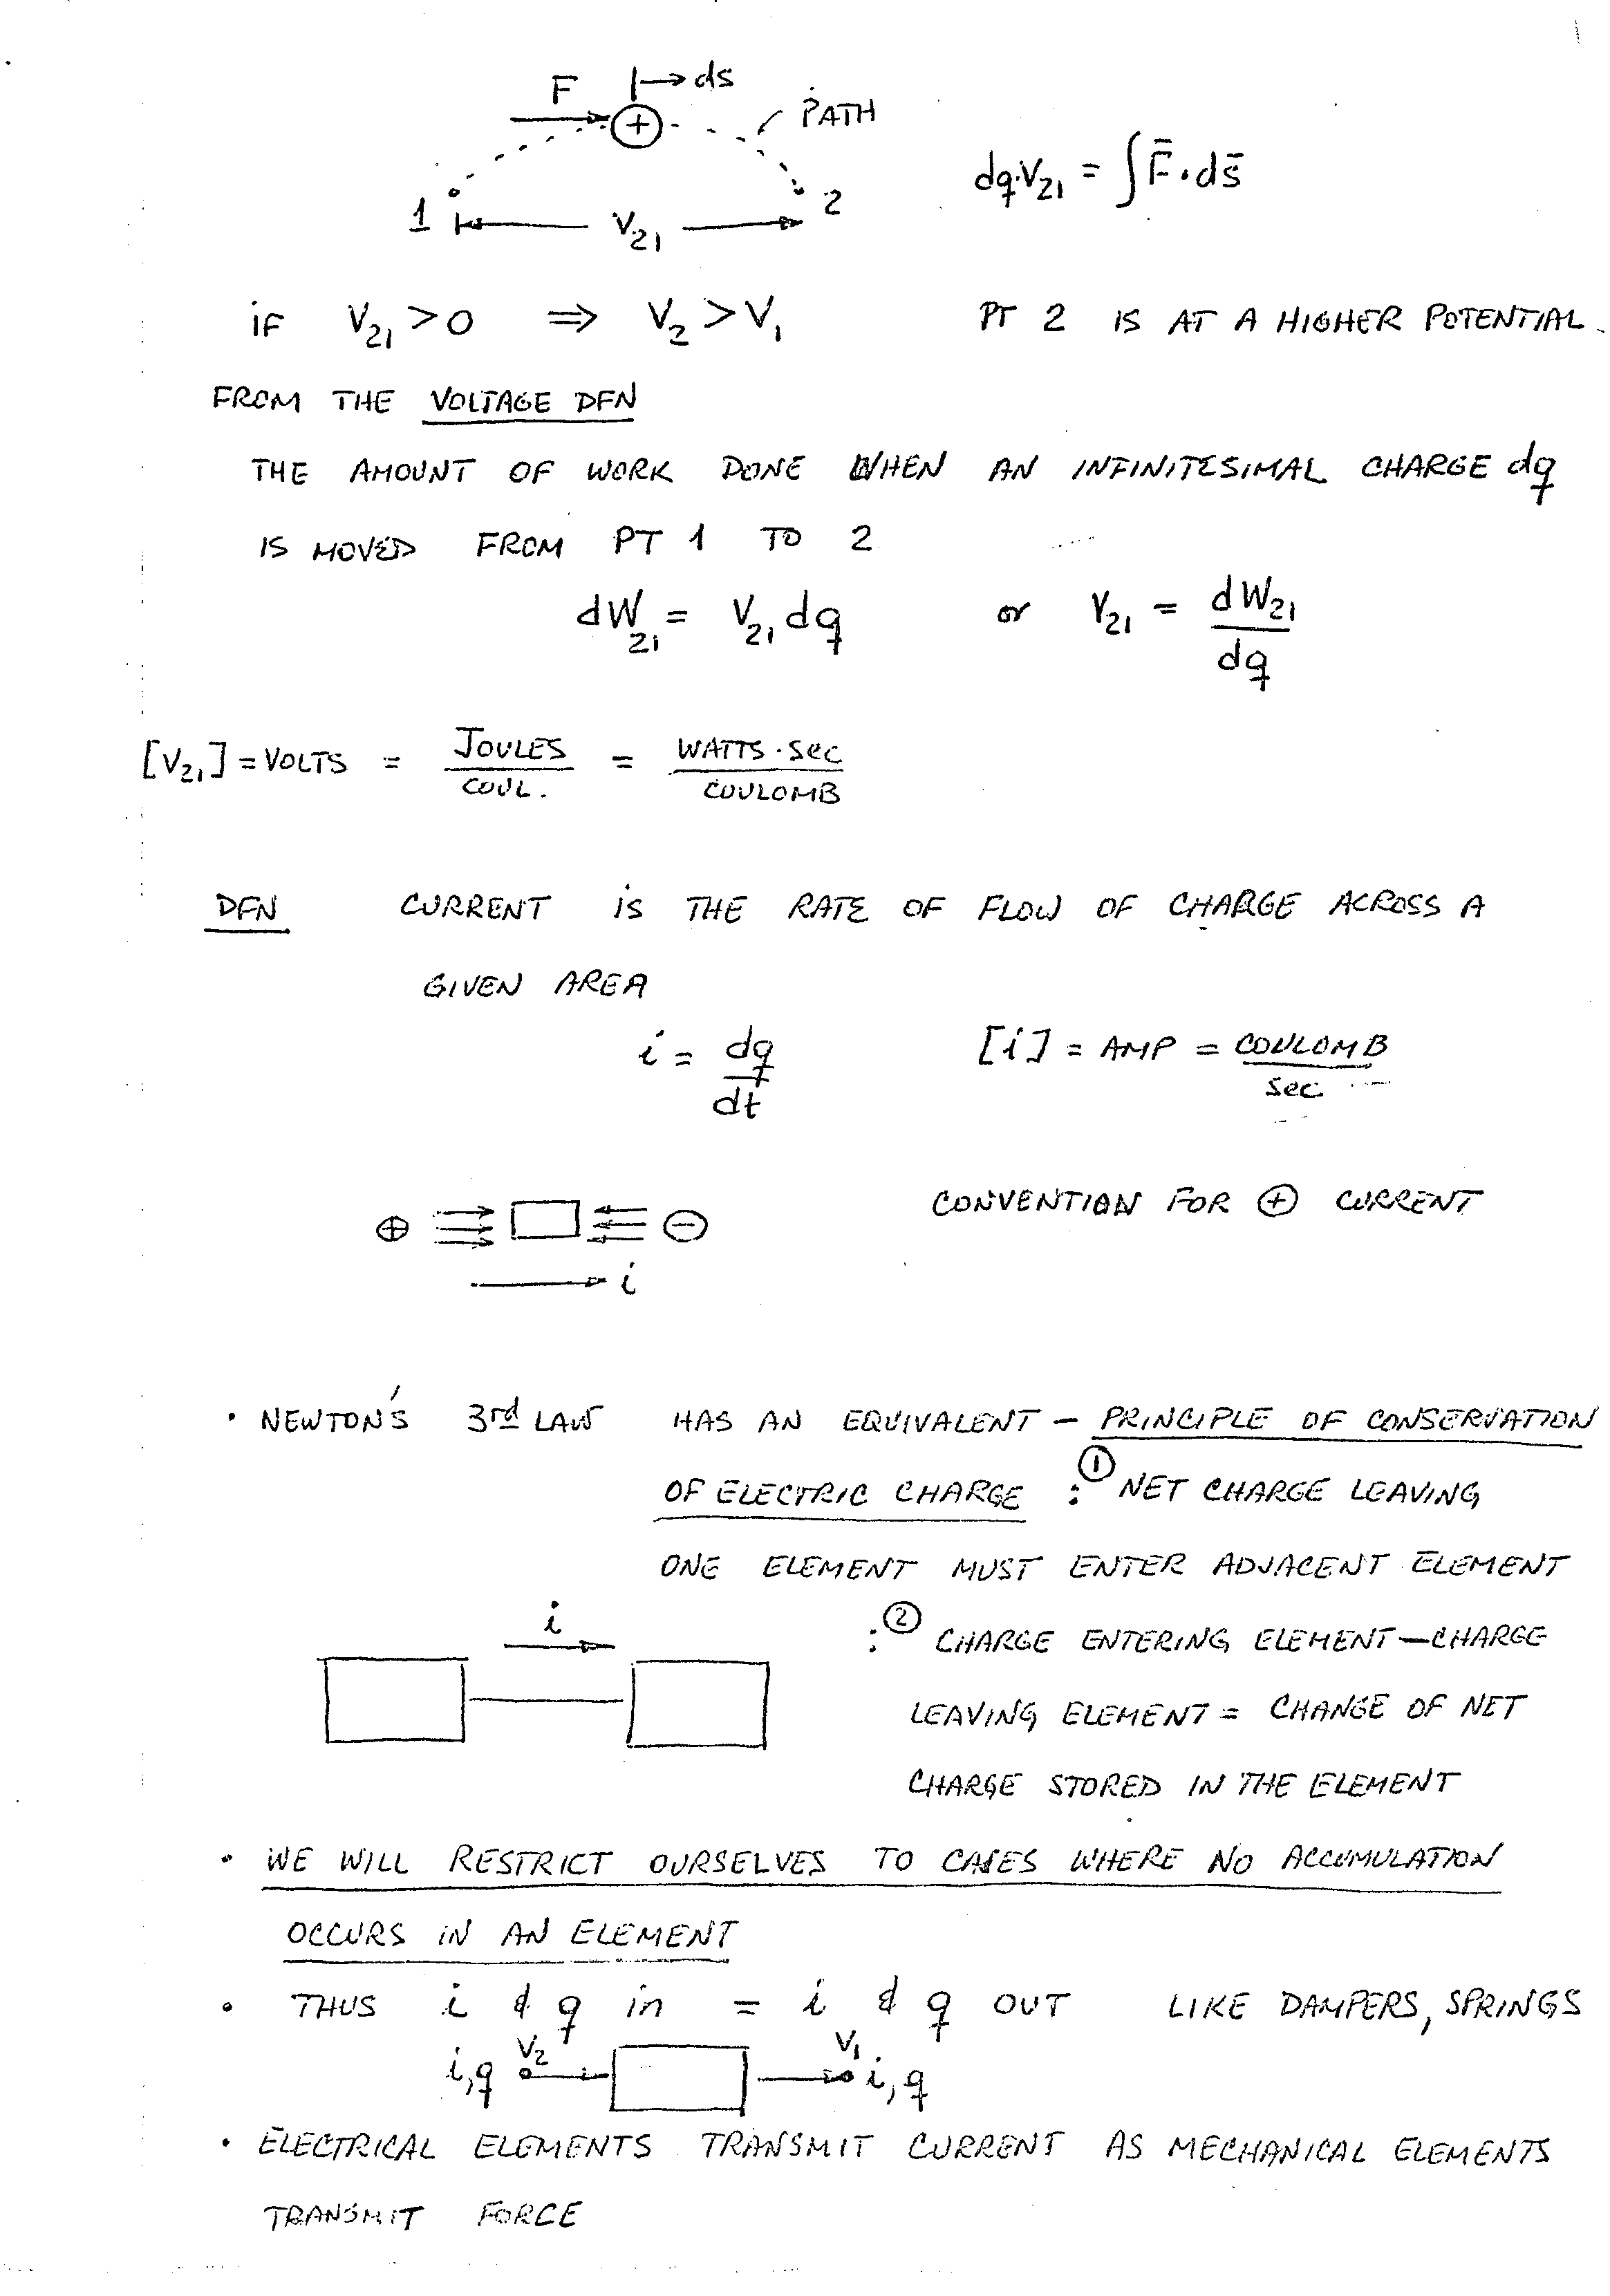 F ds
+ PATH
dq·V₂₁ = ∫F̄·ds̄
1 V₂₁ 2
iF V₂₁ > 0 ⇒ V₂ > V₁ PT 2 IS AT A HIGHER POTENTIAL.
FROM THE VOLTAGE DFN
THE AMOUNT OF WORK DONE WHEN AN INFINITESIMAL CHARGE dq
IS MOVED FROM PT 1 TO 2
dW₂₁ = V₂₁ dq or V₂₁ = dW₂₁/dq
[V₂₁] = VOLTS = JOULES/COUL. = WATTS·sec/COULOMB
DFN CURRENT is THE RATE OF FLOW OF CHARGE ACROSS A
GIVEN AREA
i = dq/dt [i] = AMP = COULOMB/sec
CONVENTION FOR ⊕ CURRENT
⊕ ⊖
i
• NEWTON'S 3rd LAW HAS AN EQUIVALENT – PRINCIPLE OF CONSERVATION
OF ELECTRIC CHARGE : ① NET CHARGE LEAVING
ONE ELEMENT MUST ENTER ADJACENT ELEMENT
i
: ② CHARGE ENTERING ELEMENT – CHARGE
LEAVING ELEMENT = CHANGE OF NET
CHARGE STORED IN THE ELEMENT
• WE WILL RESTRICT OURSELVES TO CASES WHERE NO ACCUMULATION
OCCURS IN AN ELEMENT
• THUS i & q in = i & q OUT LIKE DAMPERS, SPRINGS
V₂ V₁
i, q i, q
• ELECTRICAL ELEMENTS TRANSMIT CURRENT AS MECHANICAL ELEMENTS
TRANSMIT FORCE